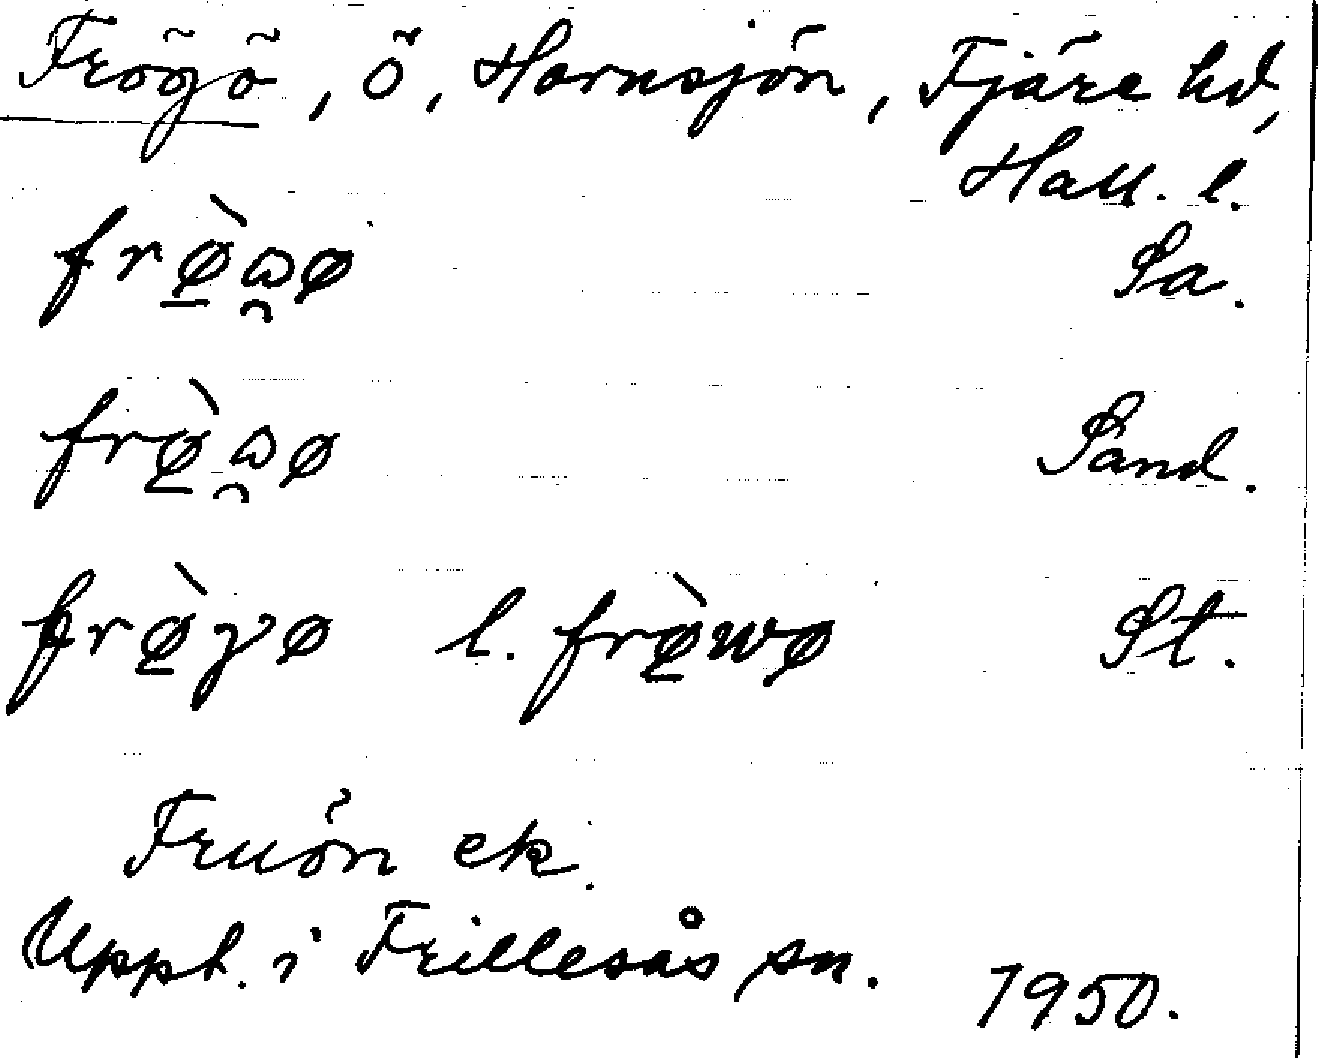 Frögö, ö, Hornsjön, Fjäre hd,
Hall. l.
frø̲̀ɷ̯ø Sa.
frø̲̀ɷ̯ø Sand.
frø̲̀γø l. frø̲̀wø St.
Fruön ek.
Uppt. i Frillesås sn. 1950.